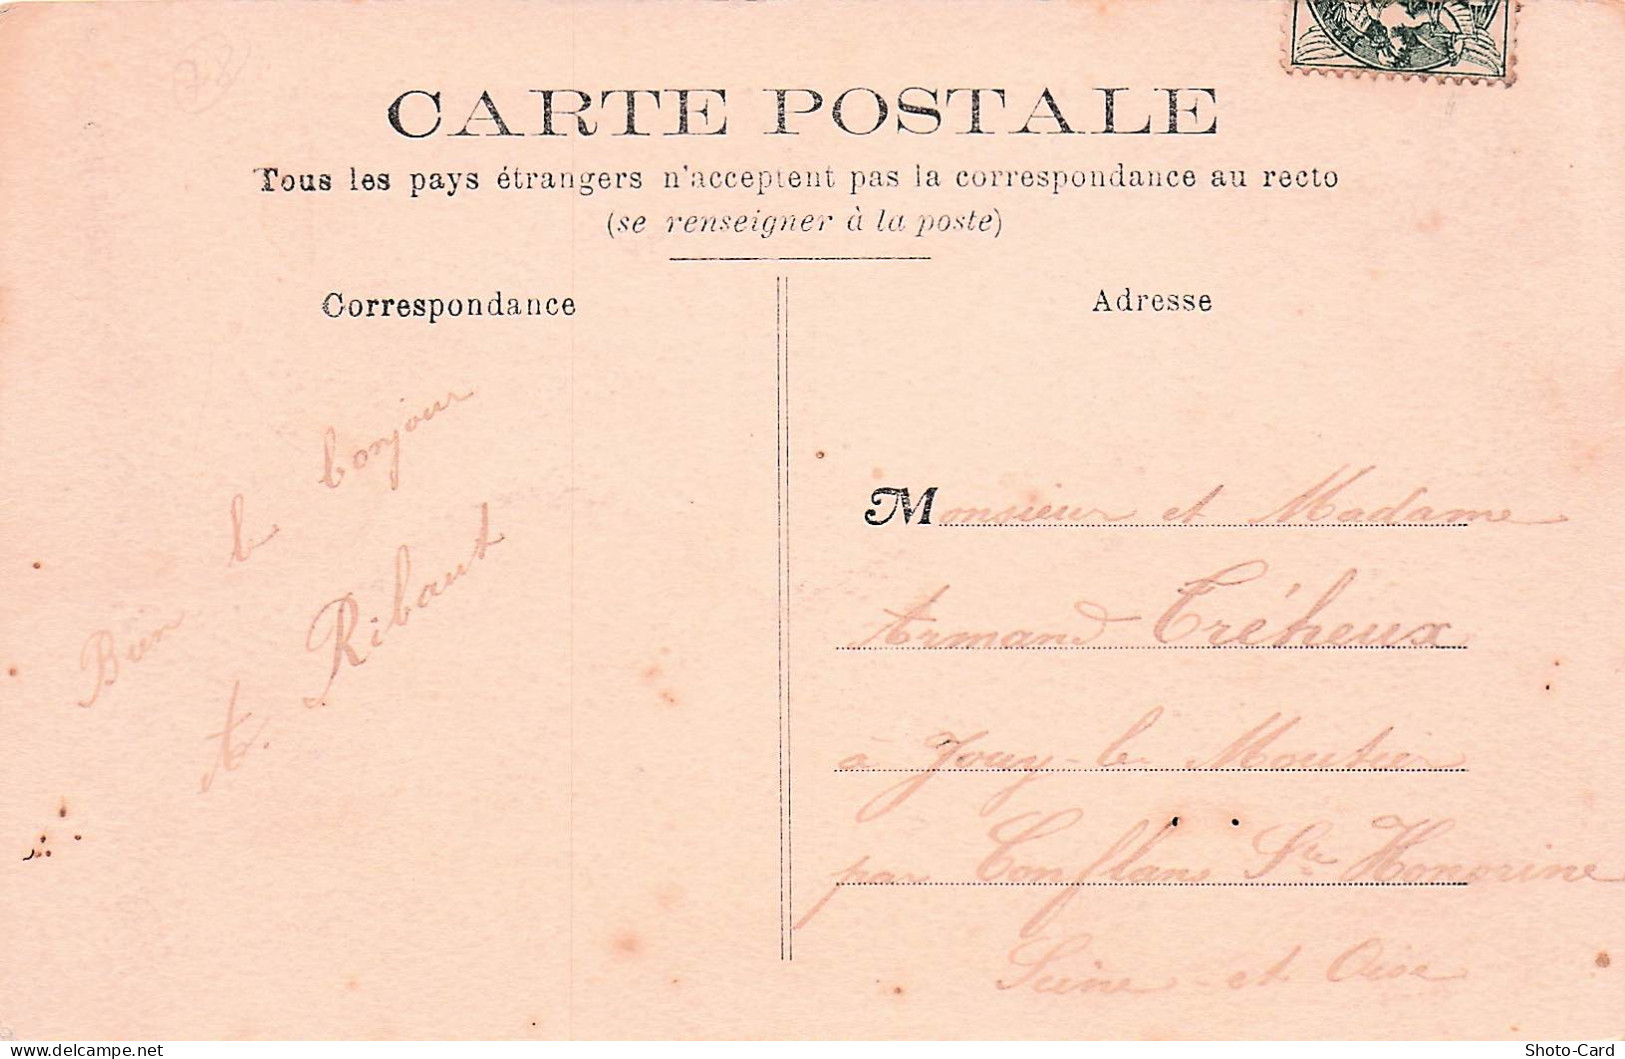 78
CARTE POSTALE
Tous les pays étrangers n'acceptent pas la correspondance au recto
(se renseigner à la poste)
Correspondance
Bien le bonjour
A. Ribaut
Adresse
Monsieur et Madame
Armand Tréheux
à Jouy-le Moutier
par Conflans Ste Honorine
Seine-et Oise
delcampe.net
Shoto-Card